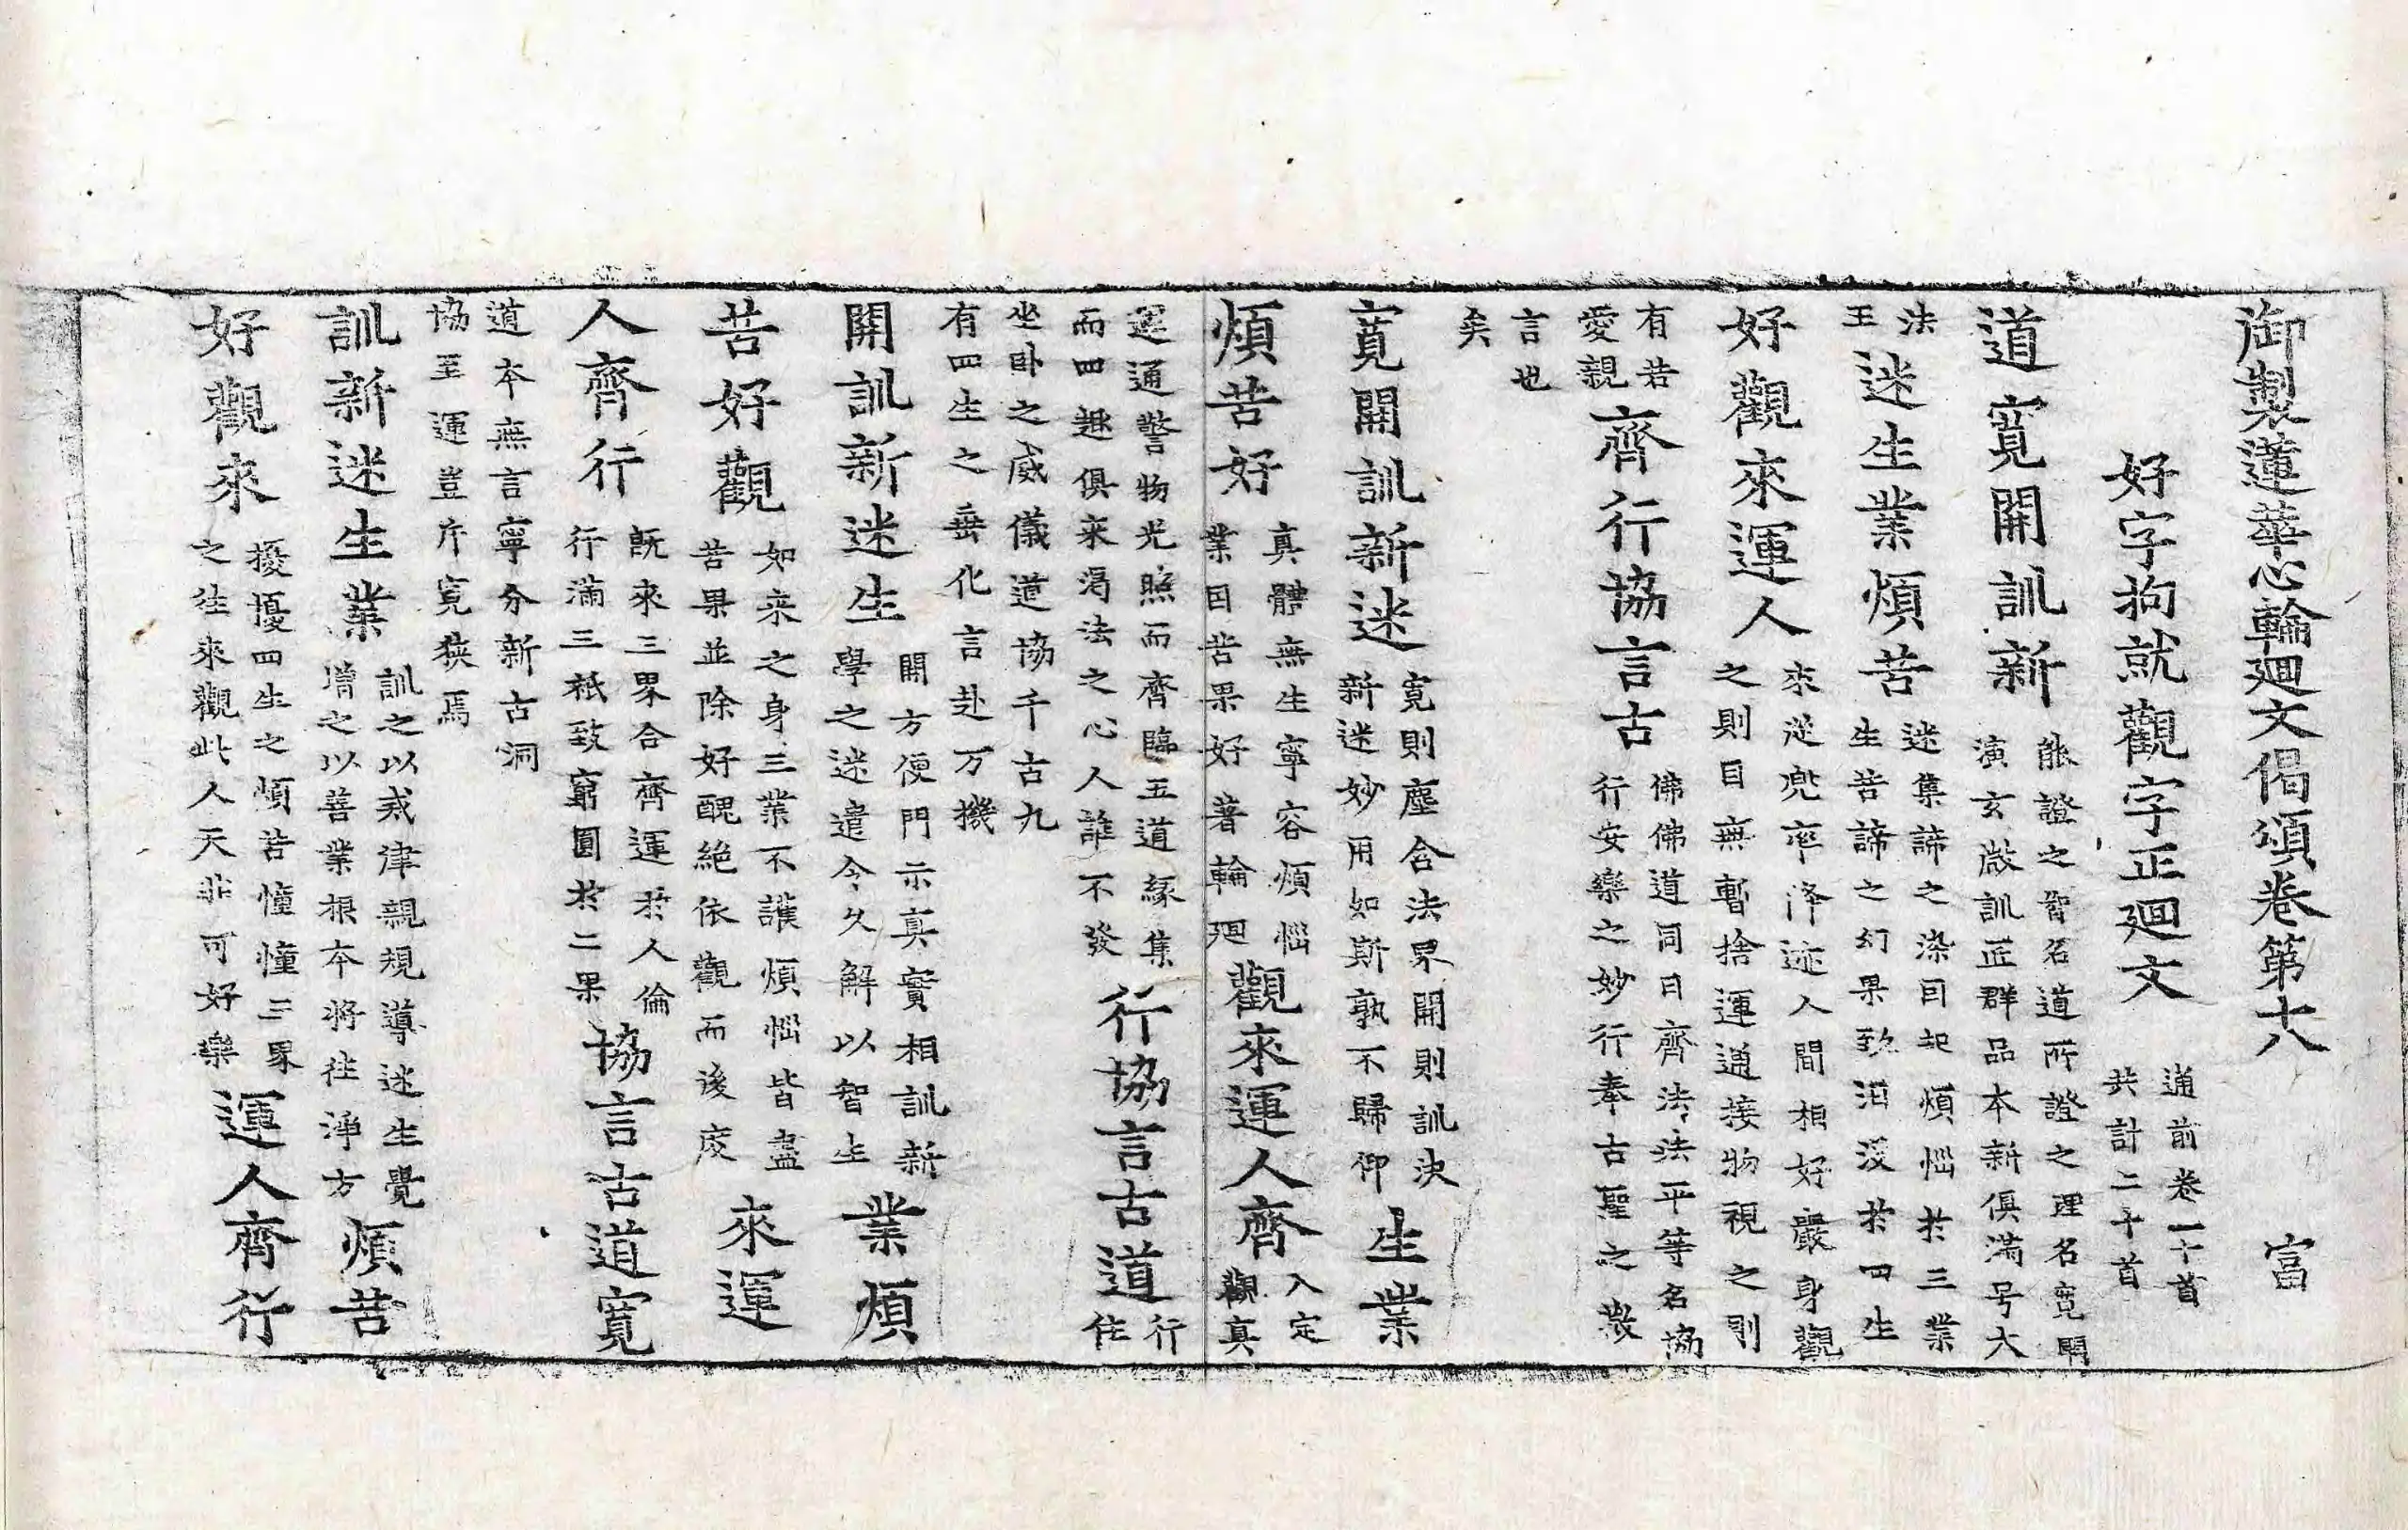 御製蓮華心輪廻文偈頌卷第十八 富
好字拘就觀字正廻文
通前卷一十首
共計二十首
道寛開訓新
能證之智名道所證之理名寛開
演玄啟訓正群品本新俱滿号大
法
王
迷生業煩苦
迷集諦之染因起煩惱於三業
生苦諦之幻果致汨没於四生
好觀來運人
來從兜率降迹人間相好嚴身觀
之則目無暫捨運通接物視之則
有若
愛親
齊行協言古
佛佛道同曰齊法法平等名協
行安樂之妙行奉古聖之微
言也
矣
寛開訓新迷
寛則塵含法界開則訓決
新迷妙用如斯孰不歸仰
生業
煩苦好
真體無生寧容煩惱
業因苦果好著輪廻
觀來運人齊
入定
觀真
運通警物光照而齊臨五道緣集
而四趣俱來渴法之心人誰不發
行協言古道
行
住
坐卧之威儀道協千古九
有四生之垂化言赴万機
開訓新迷生
開方便門示真實相訓新
學之迷遣今久解以智生
業煩
苦好觀
如来之身三業不護煩惱皆盡
苦果並除好醜絶依觀而後度
來運
人齊行
既來三界合齊運於人倫
行滿三祇致窮圓於二果
協言古道寛
道本無言寧分新古洞
協至運豈斥寛狹焉
訓新迷生業
訓之以戒律親規導迷生覺
增之以善業根本將往淨方
煩苦
好觀來
擾擾四生之煩苦憧憧三界
之往來觀此人天非可好樂
運人齊行